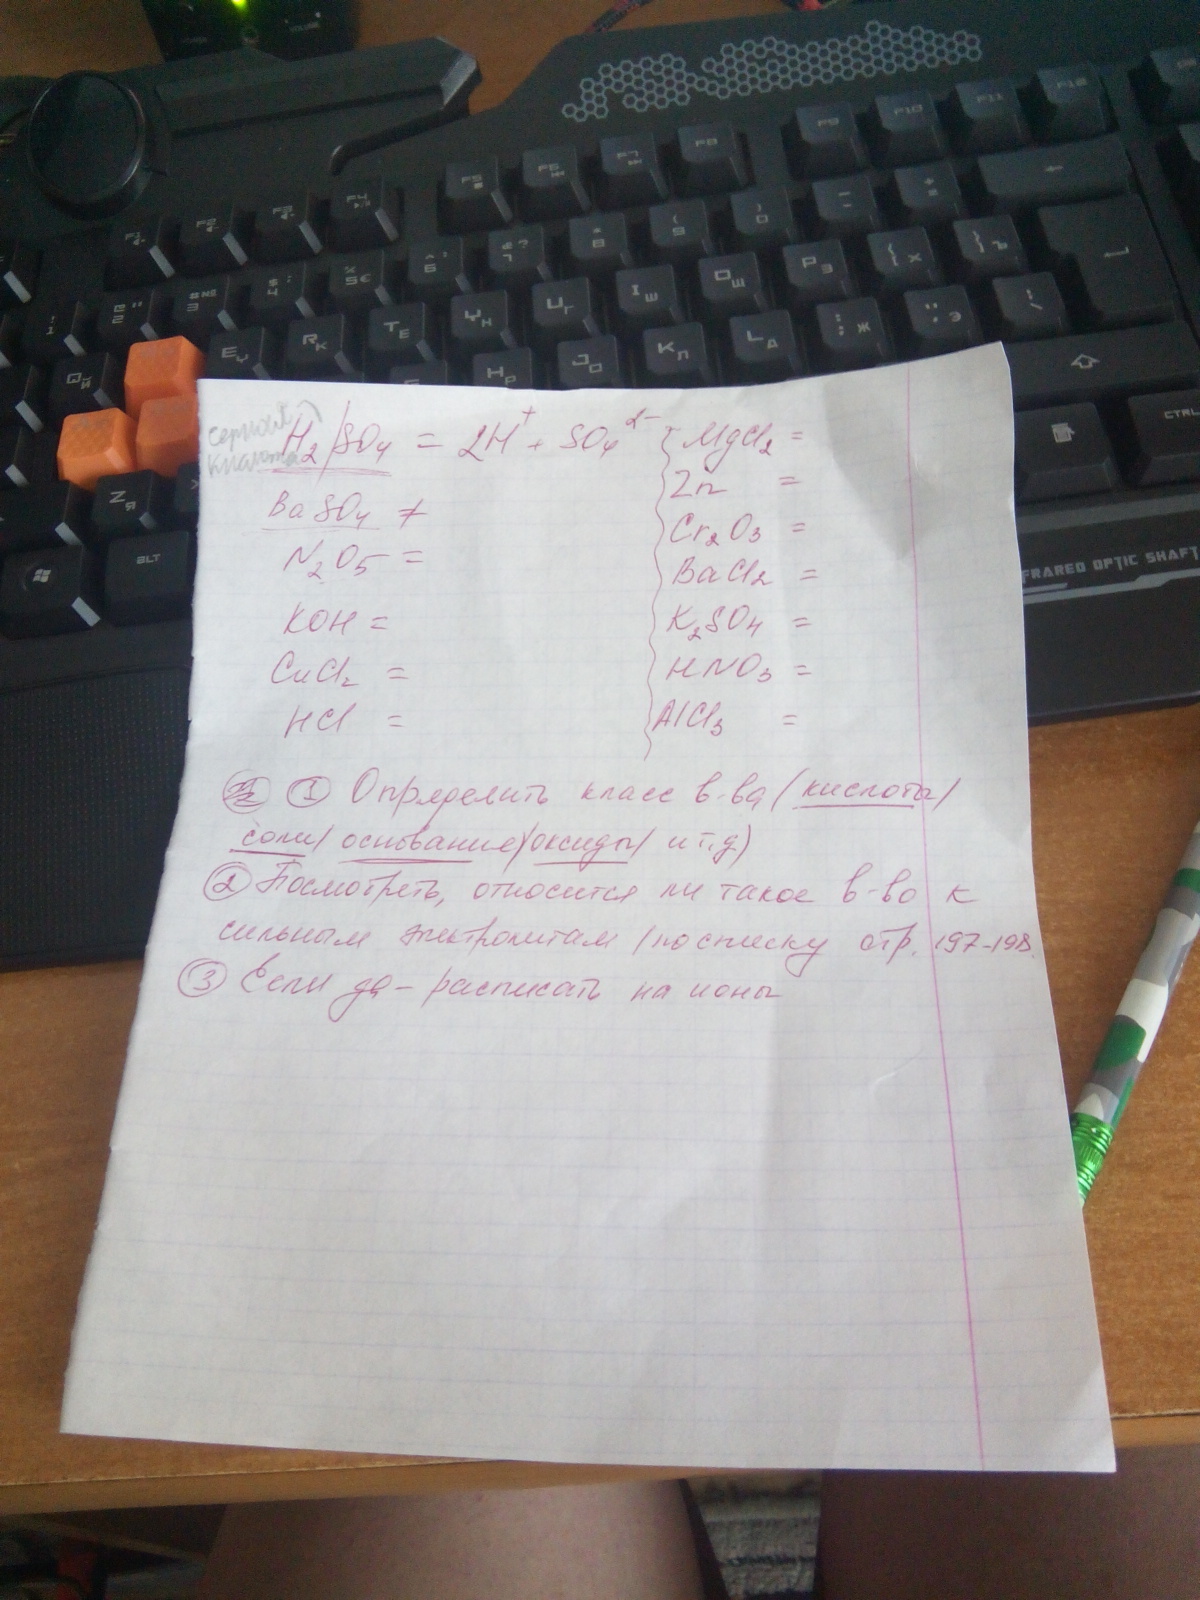 серная кислота
H₂SO₄ = 2H⁺ + SO₄²⁻
BaSO₄ ≠
N₂O₅ =
KOH =
CuCl₂ =
HCl =
MgCl₂ =
Zn =
Cr₂O₃ =
BaCl₂ =
K₂SO₄ =
HNO₃ =
AlCl₃ =
① Определить класс в-ва (кислота/
соли/ основание/оксиды/ и т.д)
② Посмотреть, относится ли такое в-во к
сильным электролитам (по списку стр. 197-198
③ Если да – расписать на ионы
F5
F6
F7
F8
F9
F10
F11
F12
F1
F2
F3
F4
ALT
CTRL
INFRARED OPTIC SHAFT
VOLUME